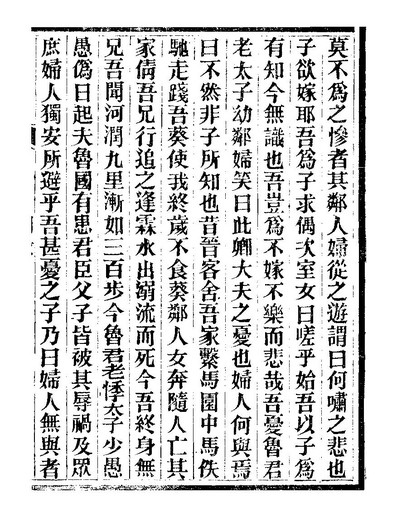 莫不爲之慘者其鄰人婦從之遊謂曰何嘯之悲也
子欲嫁耶吾爲子求偶次室女曰嗟乎始吾以子爲
有知今無識也吾豈爲不嫁不樂而悲哉吾憂魯君
老太子幼鄰婦笑曰此卿大夫之憂也婦人何與焉
曰不然非子所知也昔晉客舍吾家繫馬園中馬佚
馳走踐吾葵使我終歲不食葵鄰人女奔隨人亡其
家倩吾兄行追之逢霖水出溺流而死今吾終身無
兄吾聞河潤九里漸如三百步今魯君老悖太子少愚
愚僞日起夫魯國有患君臣父子皆被其辱禍及眾
庶婦人獨安所避乎吾甚憂之子乃曰婦人無與者